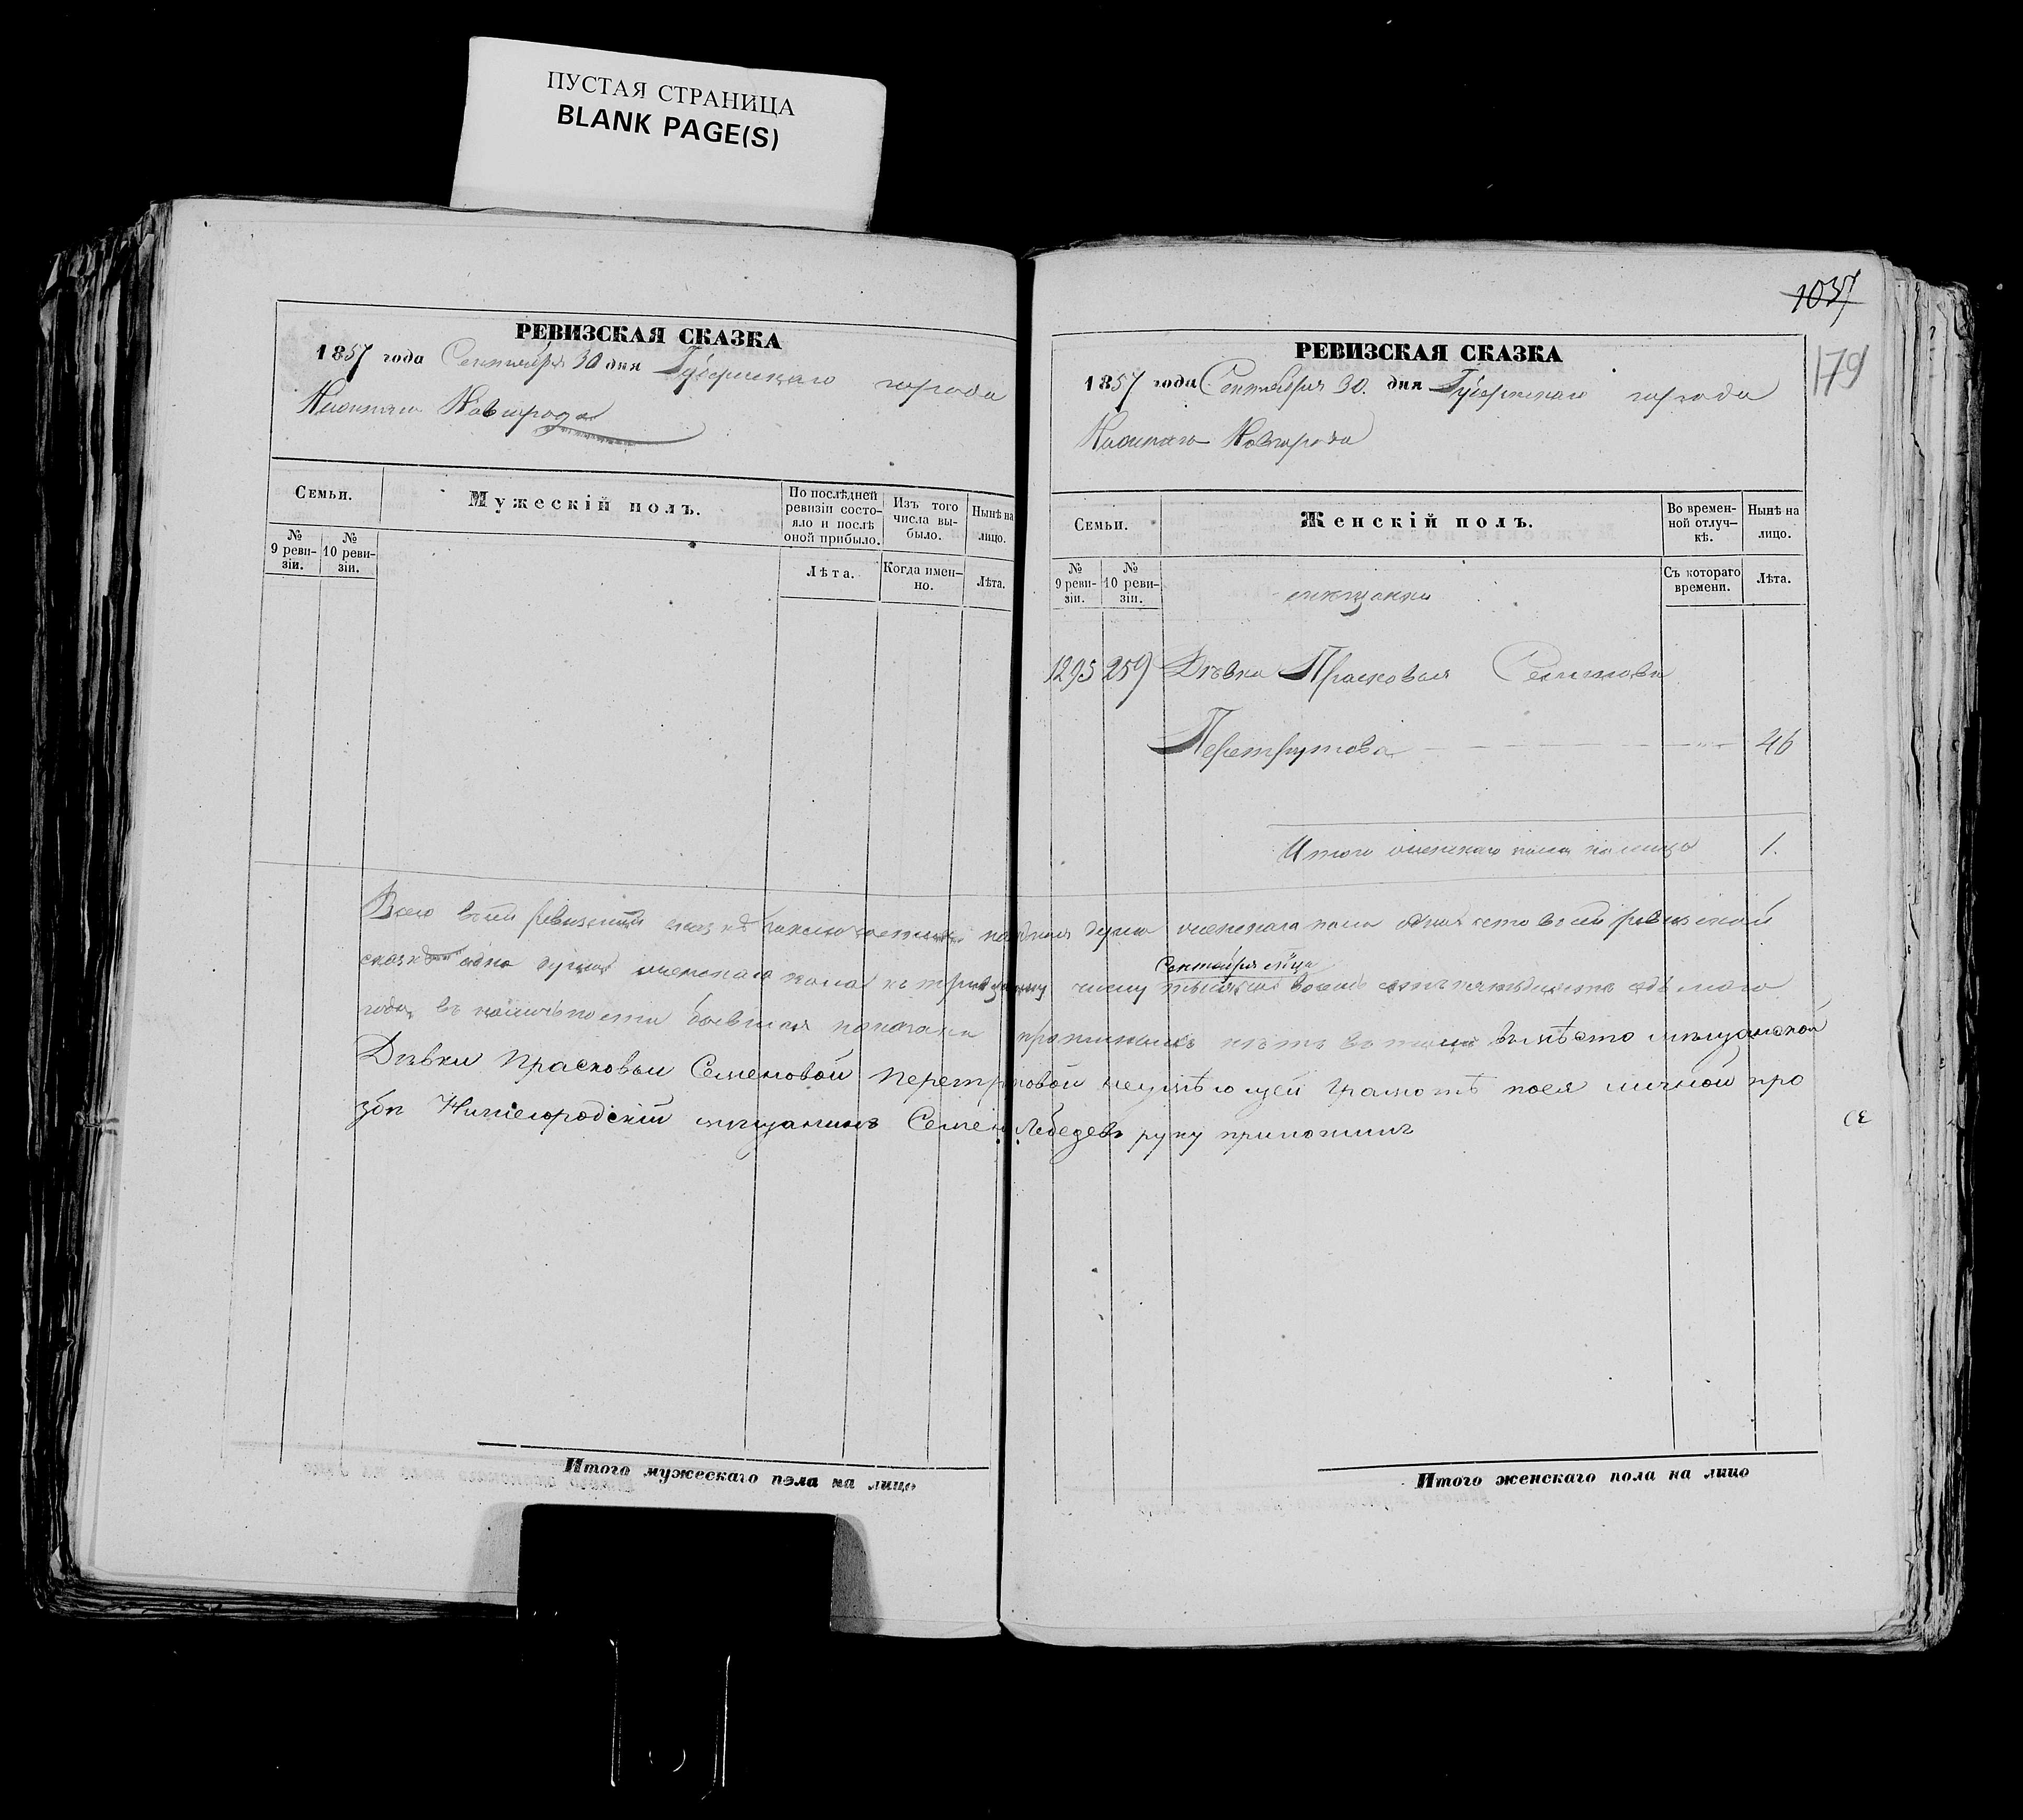 ПУСТАЯ СТРАНИЦА
BLANK PAGE(S)
РЕВИЗСКАЯ СКАЗКА
1857 года Сентября 30 дня Губернскаго города
Нижняго Новгорода
Семьи.
Мужескій полъ.
По послѣдней ревизіи состо-
яло и послѣ
оной прибыло.
Изъ того
числа вы-
было.
Нынѣ на
лицо.
№
9 реви-
зіи.
№
10 реви-
зіи.
Лѣта.
Когда имен-
но.
Лѣта.
Итого мужескаго пола на лицо
1037
179
РЕВИЗСКАЯ СКАЗКА
1857 года Сентября 30. дня Губернскаго города
Нижняго Новгорода
Семьи.
Женскій полъ.
Во времен-
ной отлуч-
кѣ.
Нынѣ на
лицо.
№
9 реви-
зіи.
№
10 реви-
зіи.
Съ котораго
времени.
Лѣта.
мѣщанки
1295 259 Дѣвка Прасковья Семенова
Перетрутова 46
Итого женскаго пола на лицо 1.
Всего въ сей ревизской сказкѣ душа женскаго пола одна въ сей ревизской
Сентября м͠ца
сказкѣ одна душа женскаго пола къ числу тысяча восемь сотъ пятьдесятъ седьмаго
года въ наличности бывшая показана нѣтъ въ томъ вмѣсто мѣщанской
Дѣвки Прасковьи Семеновой неумѣющей грамотѣ поея личной про
збѣ Нижегородскій мѣщанинъ Семенъ Лебедевъ руку приложилъ
Итого женскаго пола на лицо